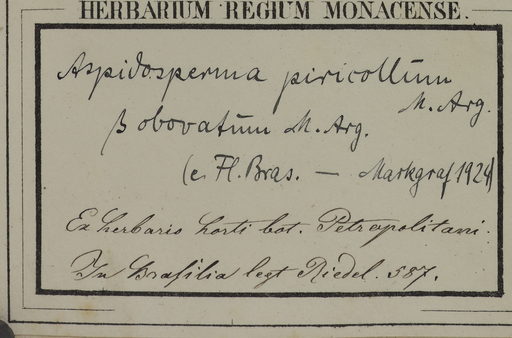 HERBARIUM REGIUM MONACENSE.
Aspidosperma piricollum
M. Arg.
β obovatum M. Arg.
(e Fl. Bras. — Markgraf 1924)
Ex herbario horti bot. Petropolitani.
In Brasilia legt Riedel. 587.